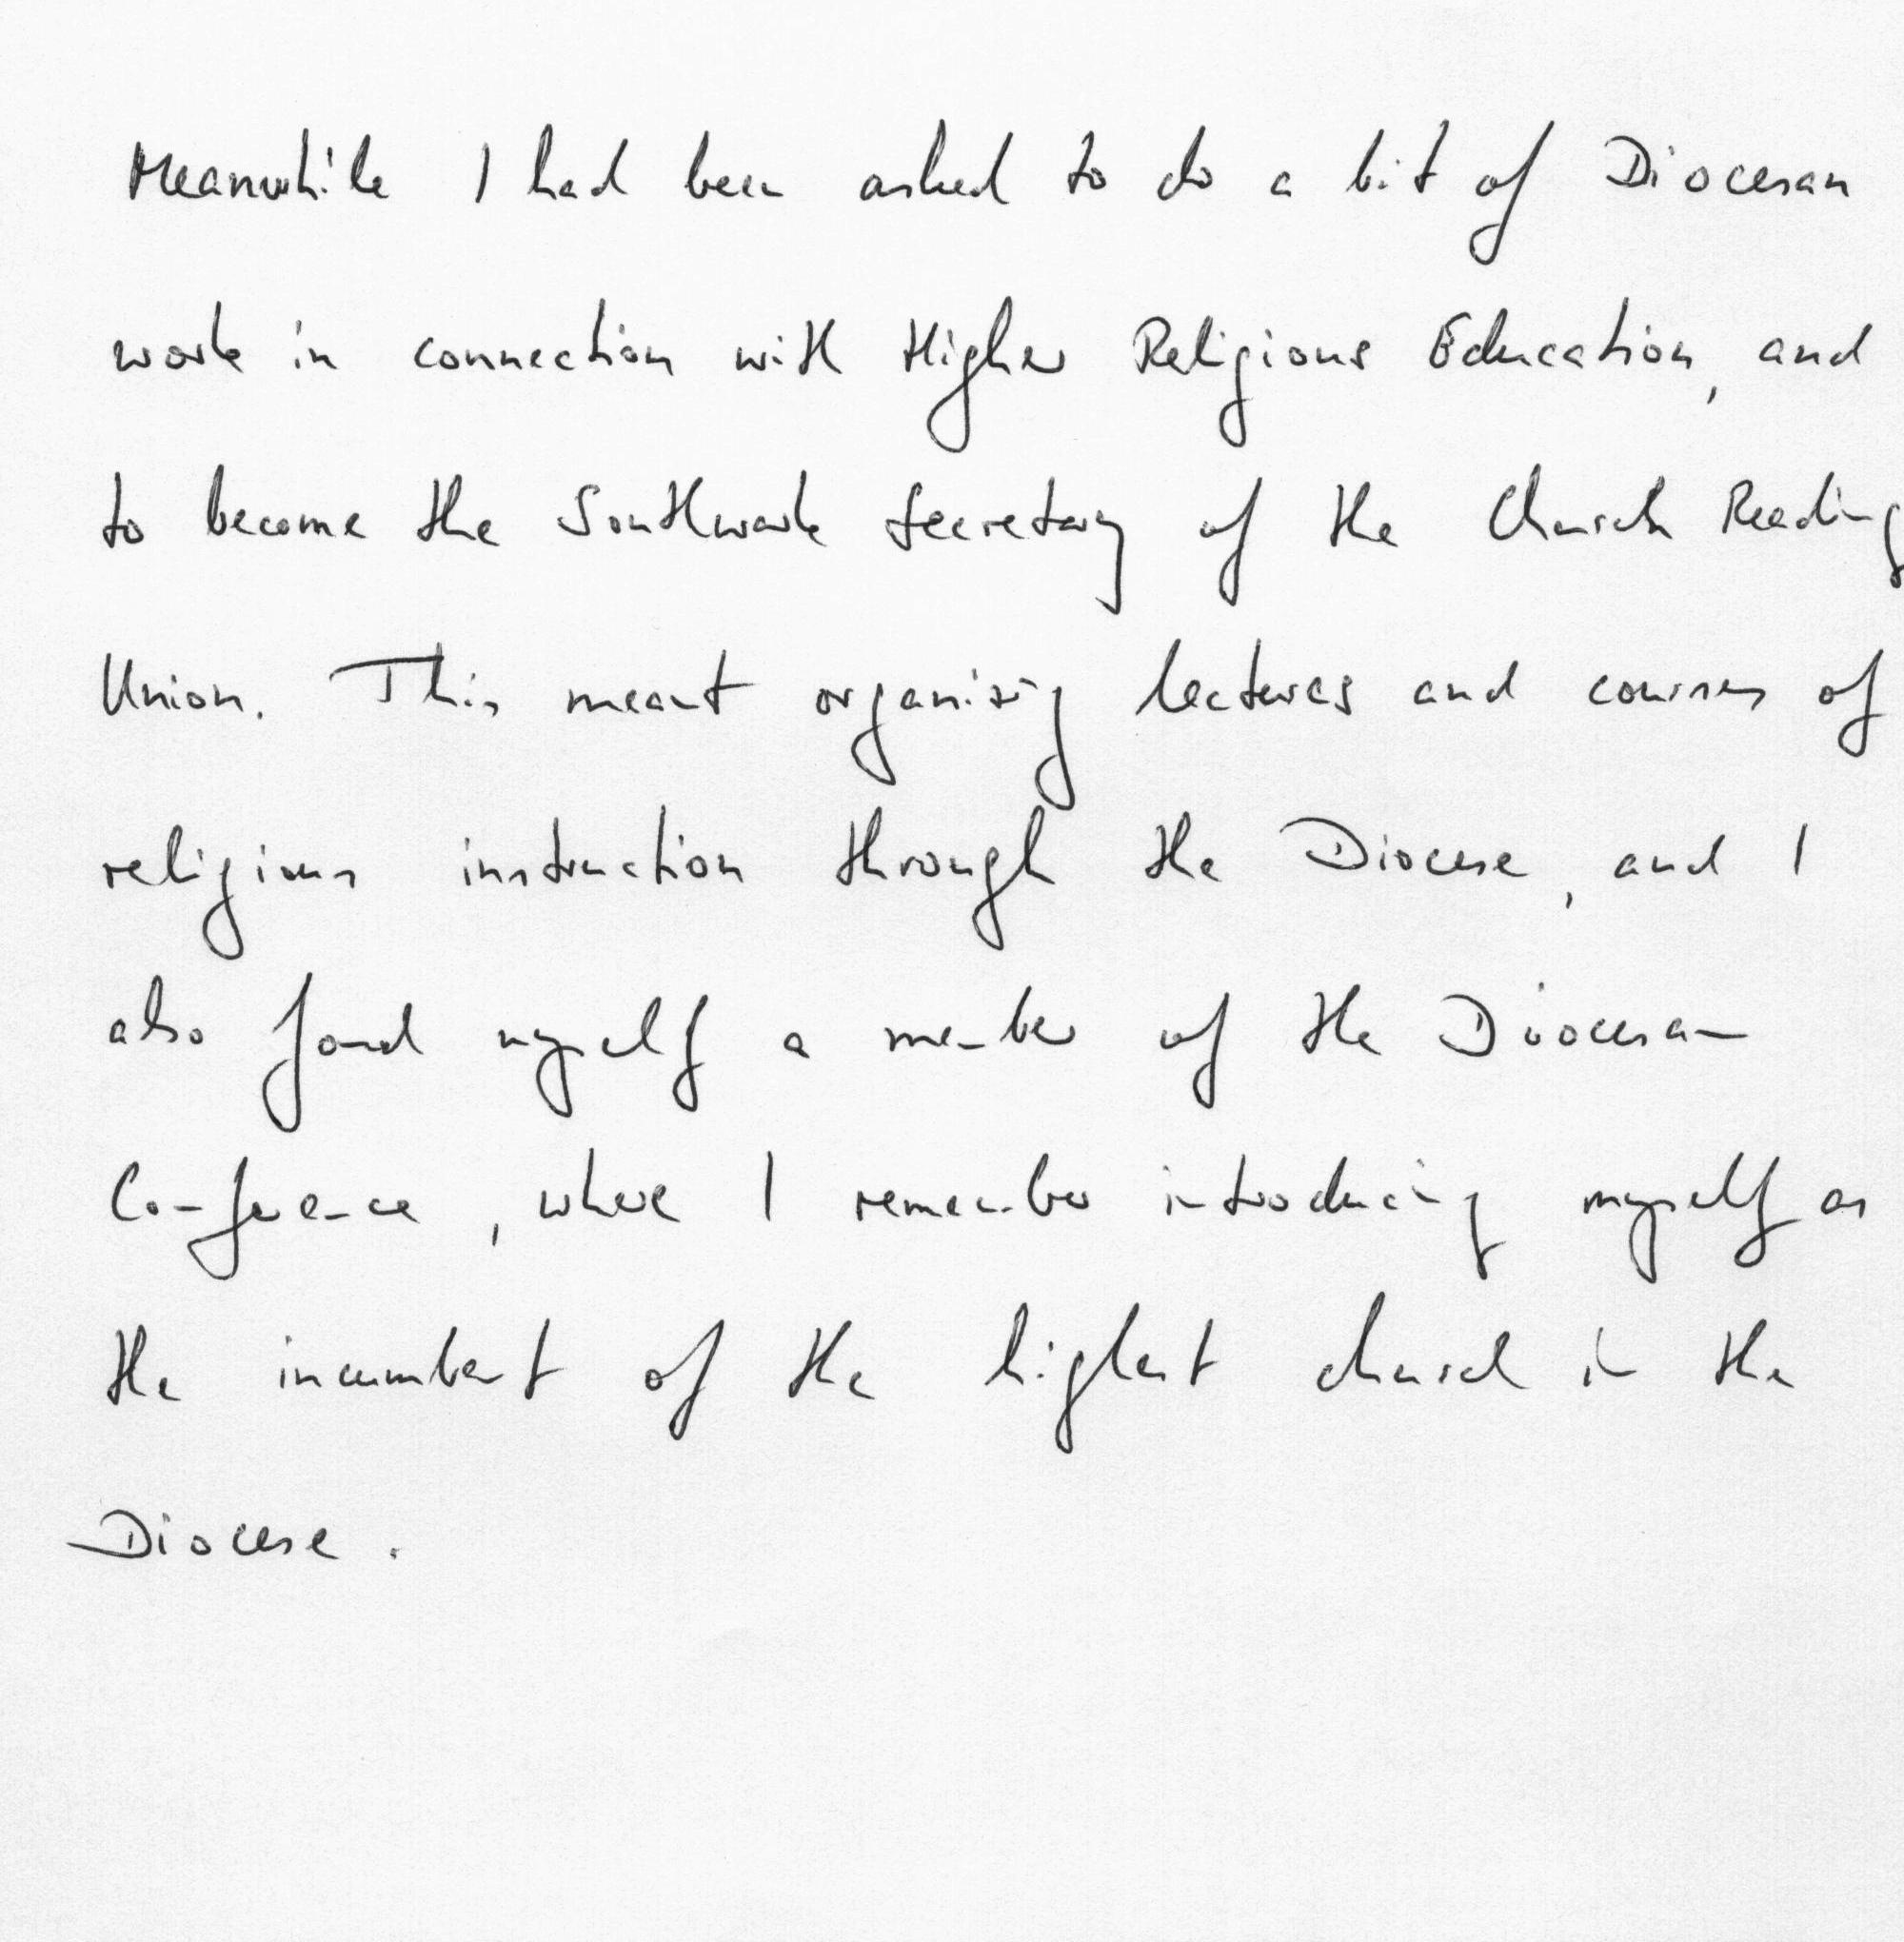 Meanwhile I had been asked to do a bit of Diocesan
work in connection with Higher Religious Education, and
to become the Southwark Secretary of the Church Reading
Union. This meant organising lectures and courses of
religious instruction through the Diocese, and I
also found myself a member of the Diocesan
Conference, where I remember introducing myself as
the incumbent of the highest church in the
Diocese.